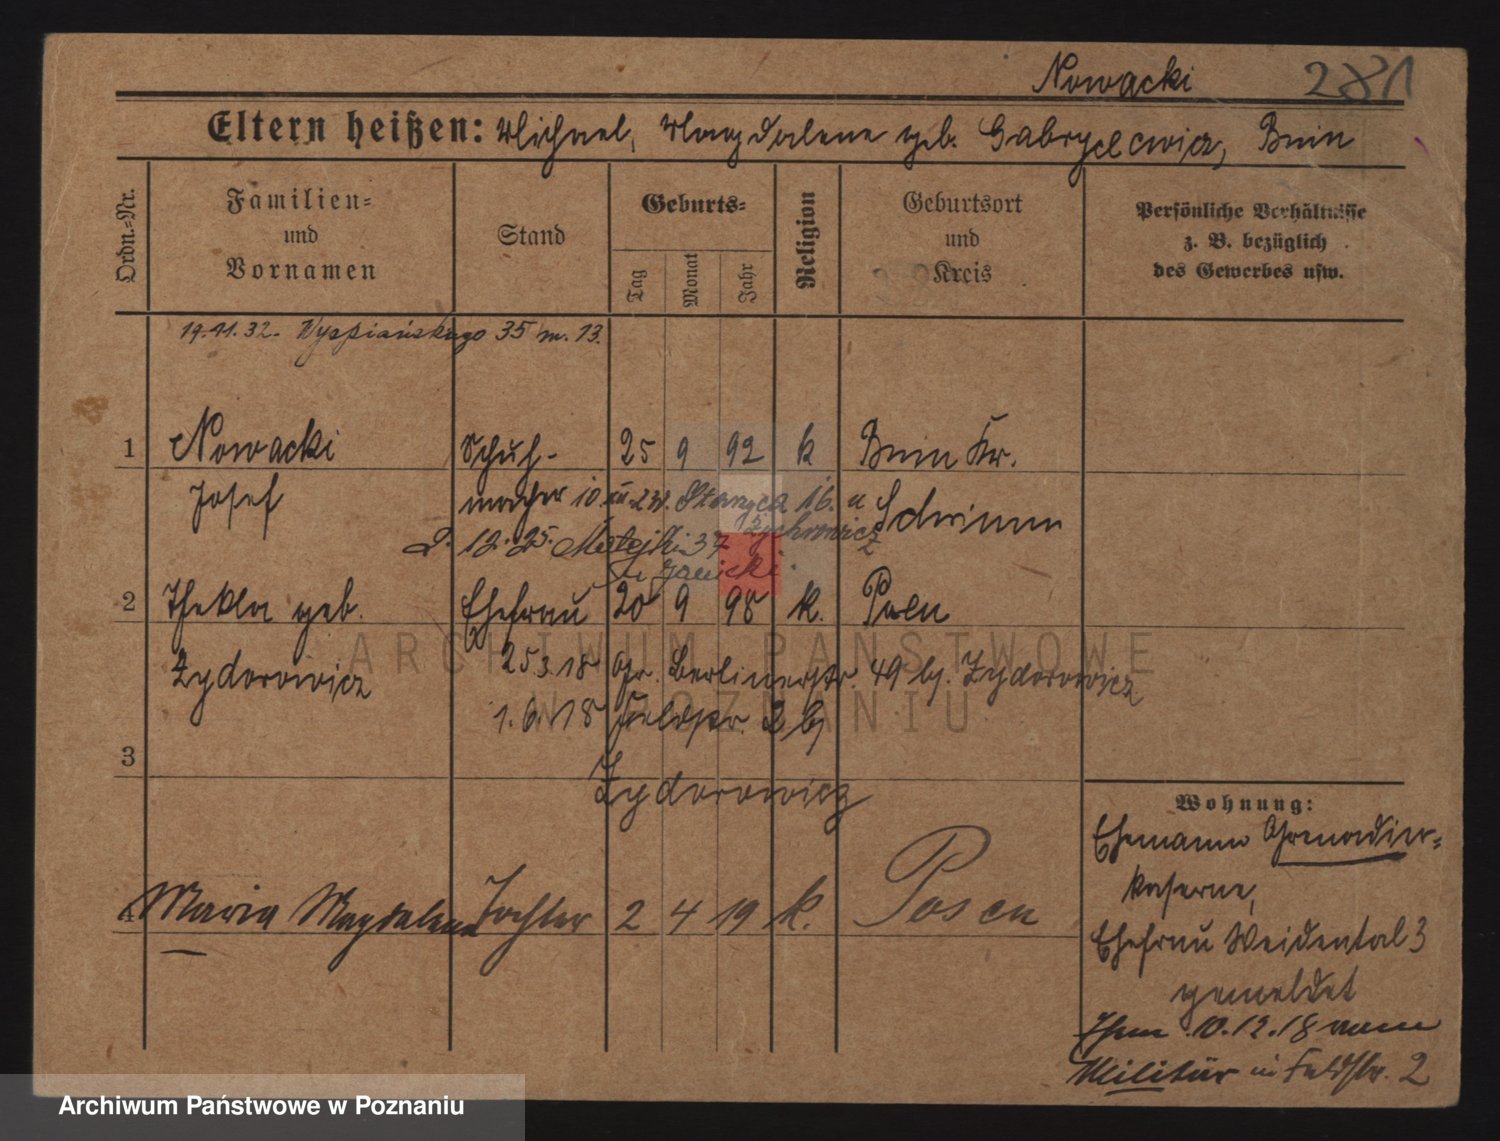 Nowacki 281
Eltern heißen: Michael, Magdalene geb. Gabryelewicz, Bnin
Ordn.=Nr.
Familien=
und
Vornamen
Stand
Geburts=
Tag
Monat
Jahr
Religion
Geburtsort
und
Kreis
Persönliche Verhältnisse
z. B. bezüglich
des Gewerbes usw.
19.11.32. Wyspiańskiego 35 m. 13.
1 Nowacki Schuh- 25 9 92 k Bnin Kr.
Josef macher 10. 16. u Schrimm
Żychrowicz
12.25. Matejki 37
u Janicki.
2 Thekla geb. Ehefrau 20 9 98 k. Posen
Zydorowicz 25.3.18 Gr. Berlinerstr. 49 bj. Zydorowicz
1.6.18 Feldstr. 2 bj
3 Zydorowicz
4 Maria Magdalena Tochter 2 4 19 k. Posen
Wohnung:
Ehemann Grenadier=
kaserne,
Ehefrau Weidental 3
gemeldet
Ehem 10.12.18 vom
Militär in Feldstr. 2
ARCHIWUM PAŃSTWOWE
W POZNANIU
Archiwum Państwowe w Poznaniu